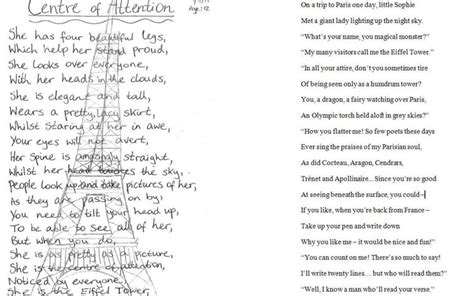 Centre of Attention
Age: 12
She has four beautiful legs,
Which help her stand proud,
She looks over everyone,
With her heads in the clouds,
She is elegant and tall,
Wears a pretty lacy skirt,
Whilst staring at her in awe,
Your eyes will not avert,
Her Spine is amazingly straight,
Whilst her head touches the sky,
People look up and take pictures of her,
As they are passing on by,
You need to tilt your head up,
To be able to see all of her,
But when you do,
She is as pretty as a picture,
She is the centre of attention,
Noticed by everyone,
She is the Eiffel Tower,
On a trip to Paris one day, little Sophie
Met a giant lady lighting up the night sky.
“What’s your name, you magical monster?”
“My many visitors call me the Eiffel Tower.”
“In all your attire, don’t you sometimes tire
Of being seen only as a humdrum tower?
You, a dragon, a fairy watching over Paris,
An Olympic torch held aloft in grey skies?”
“How you flatter me! So few poets these days
Ever sing the praises of my Parisian soul,
As did Cocteau, Aragon, Cendrars,
Trénet and Apollinaire... Since you’re so good
At seeing beneath the surface, you could –
If you like, when you’re back from France –
Take up your pen and write down
Why you like me – it would be nice and fun!”
“You can count on me! There’s so much to say!
I’ll write twenty lines... but who will read them?”
“Well, I know a man who’ll read your verse.